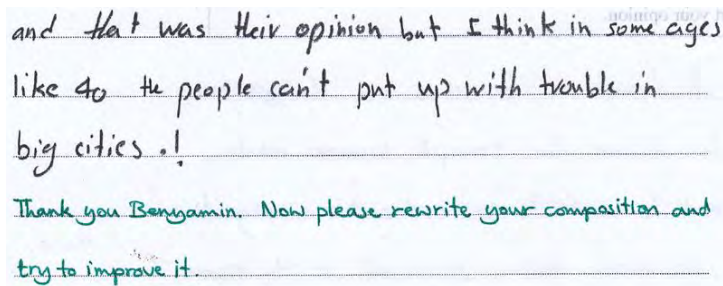 and that was their opinion but I think in some ages
like 40 the people can't put up with trouble in
big cities .!
Thank you Benyamin. Now please rewrite your composition and
try to improve it.